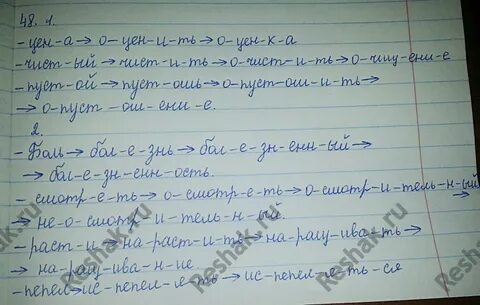 48. 1.
-цен-а→о-цен-и-ть→о-цен-к-а
-чист-ый→чист-и-ть→о-чист-и-ть→о-чищ-ени-е
-пуст-ой→пуст-ошь→о-пуст-ош-и-ть→
→о-пуст-ош-ени-е.
2.
-Боль→бол-е-знь→бол-е-зн-енн-ый→
→бол-е-зн-енн-ость.
-смотр-е-ть→о-смотр-е-ть→о-смотр-и-тель-н-ый→
→не-о-смотр-и-тель-н-ый.
-раст-и→на-раст-и-ть→на-ращ-ива-ть→
→на-ращ-ива-н-ие
-пепел→ис-пепел-и-ть→ис-пепел-я-ть-ся
Reshak.ru
Reshak.ru
Reshak.ru
Reshak.ru